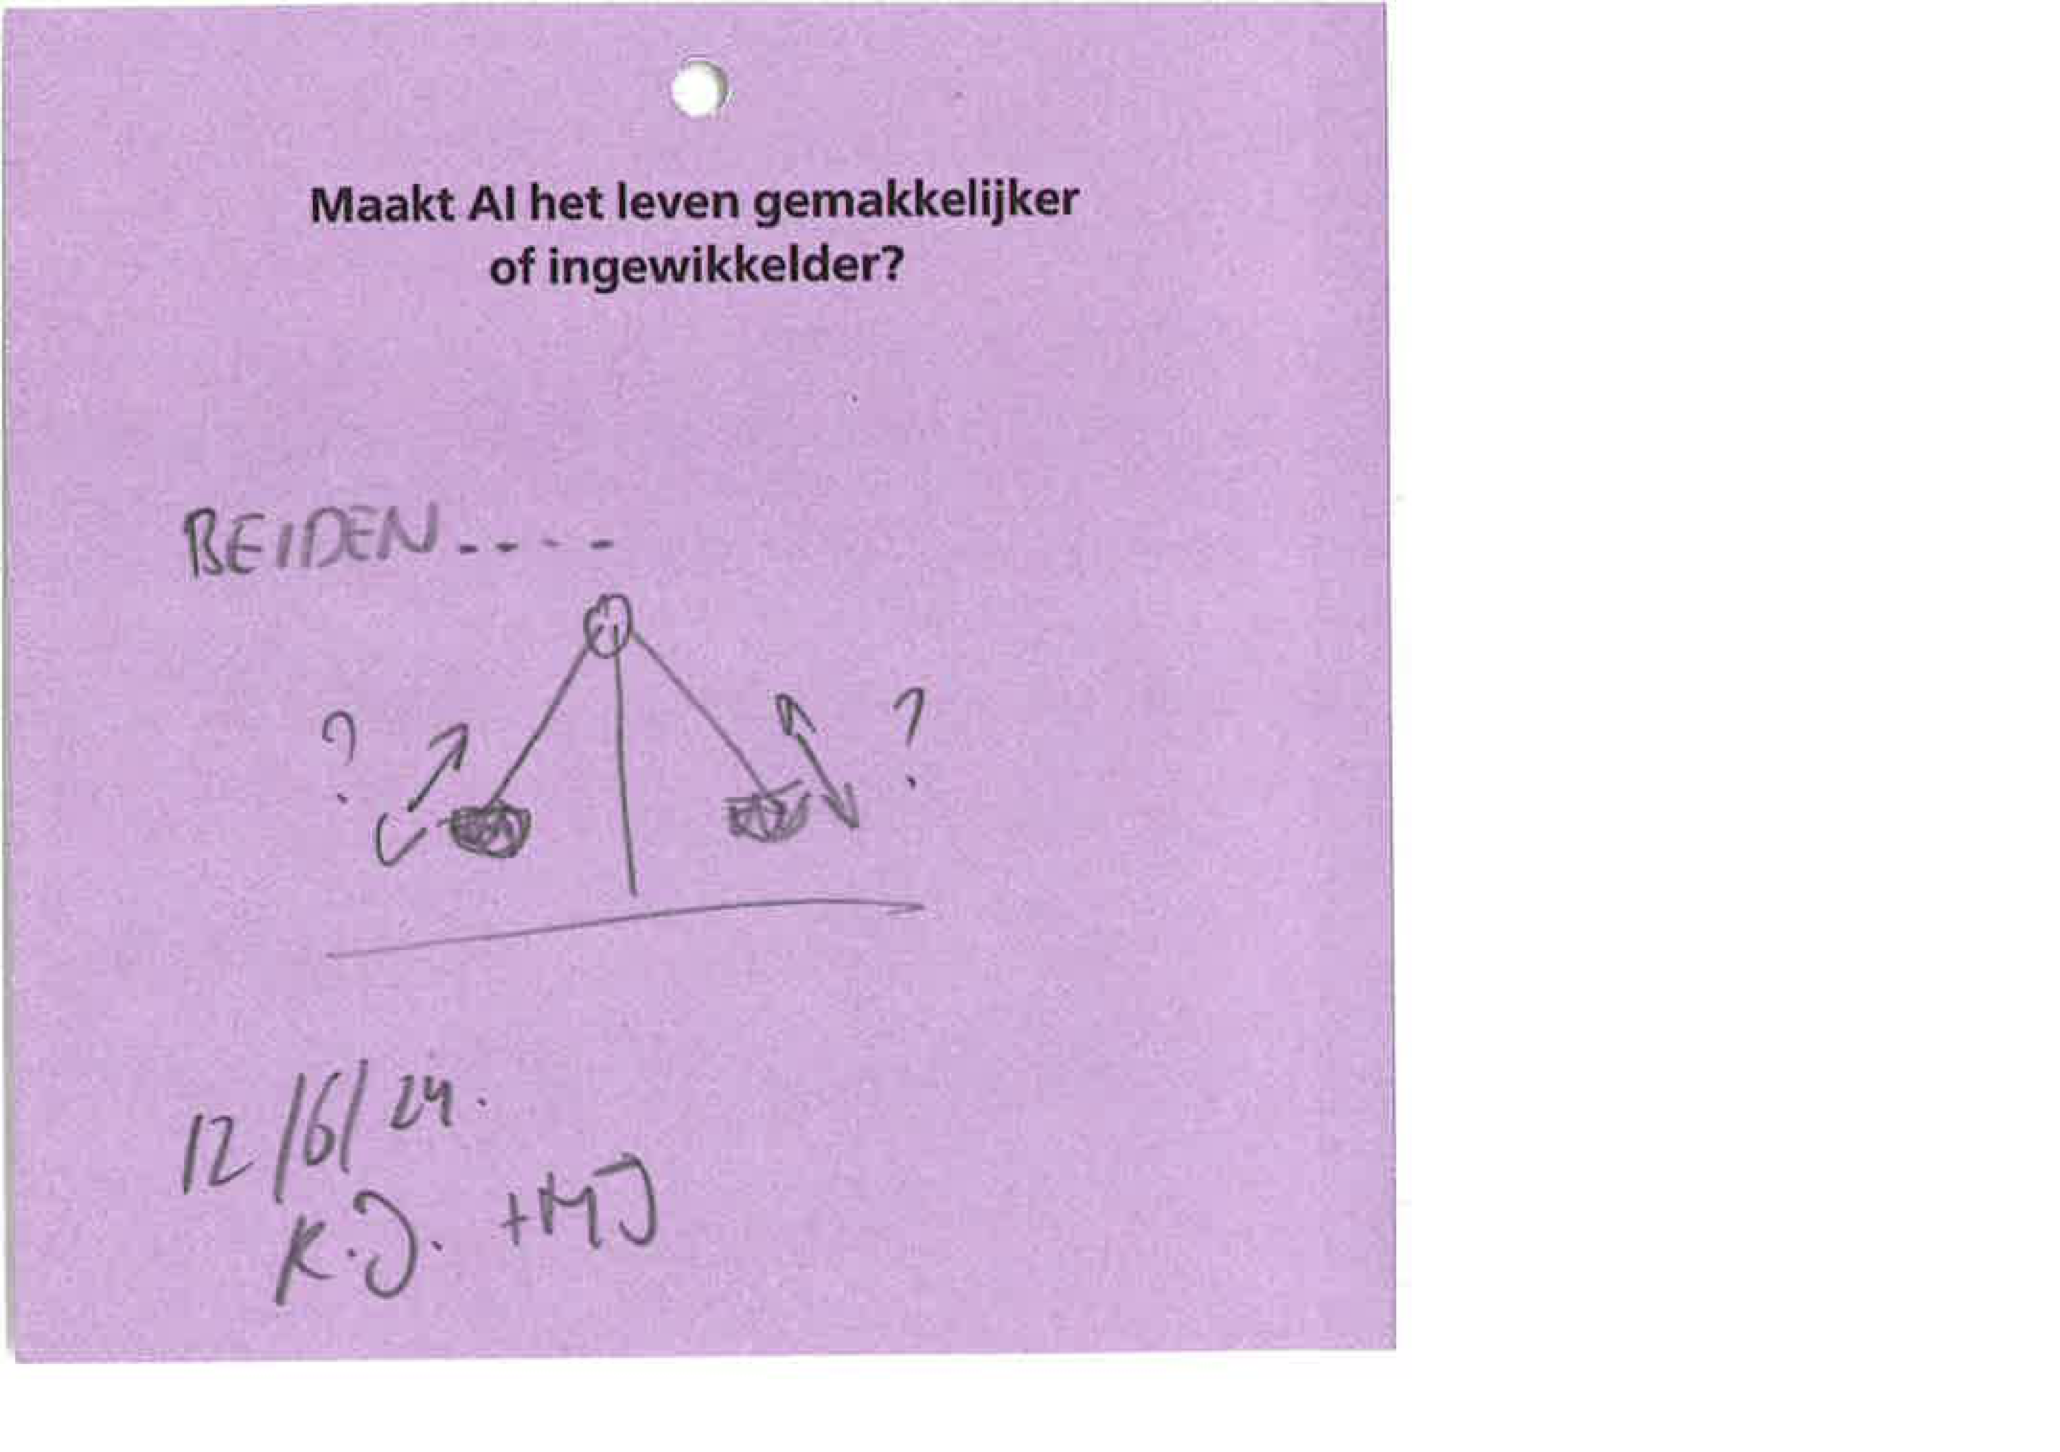 Maakt AI het leven gemakkelijker
of ingewikkelder?
BEIDEN----
? ?
12/6/24.
K.J. +MJ